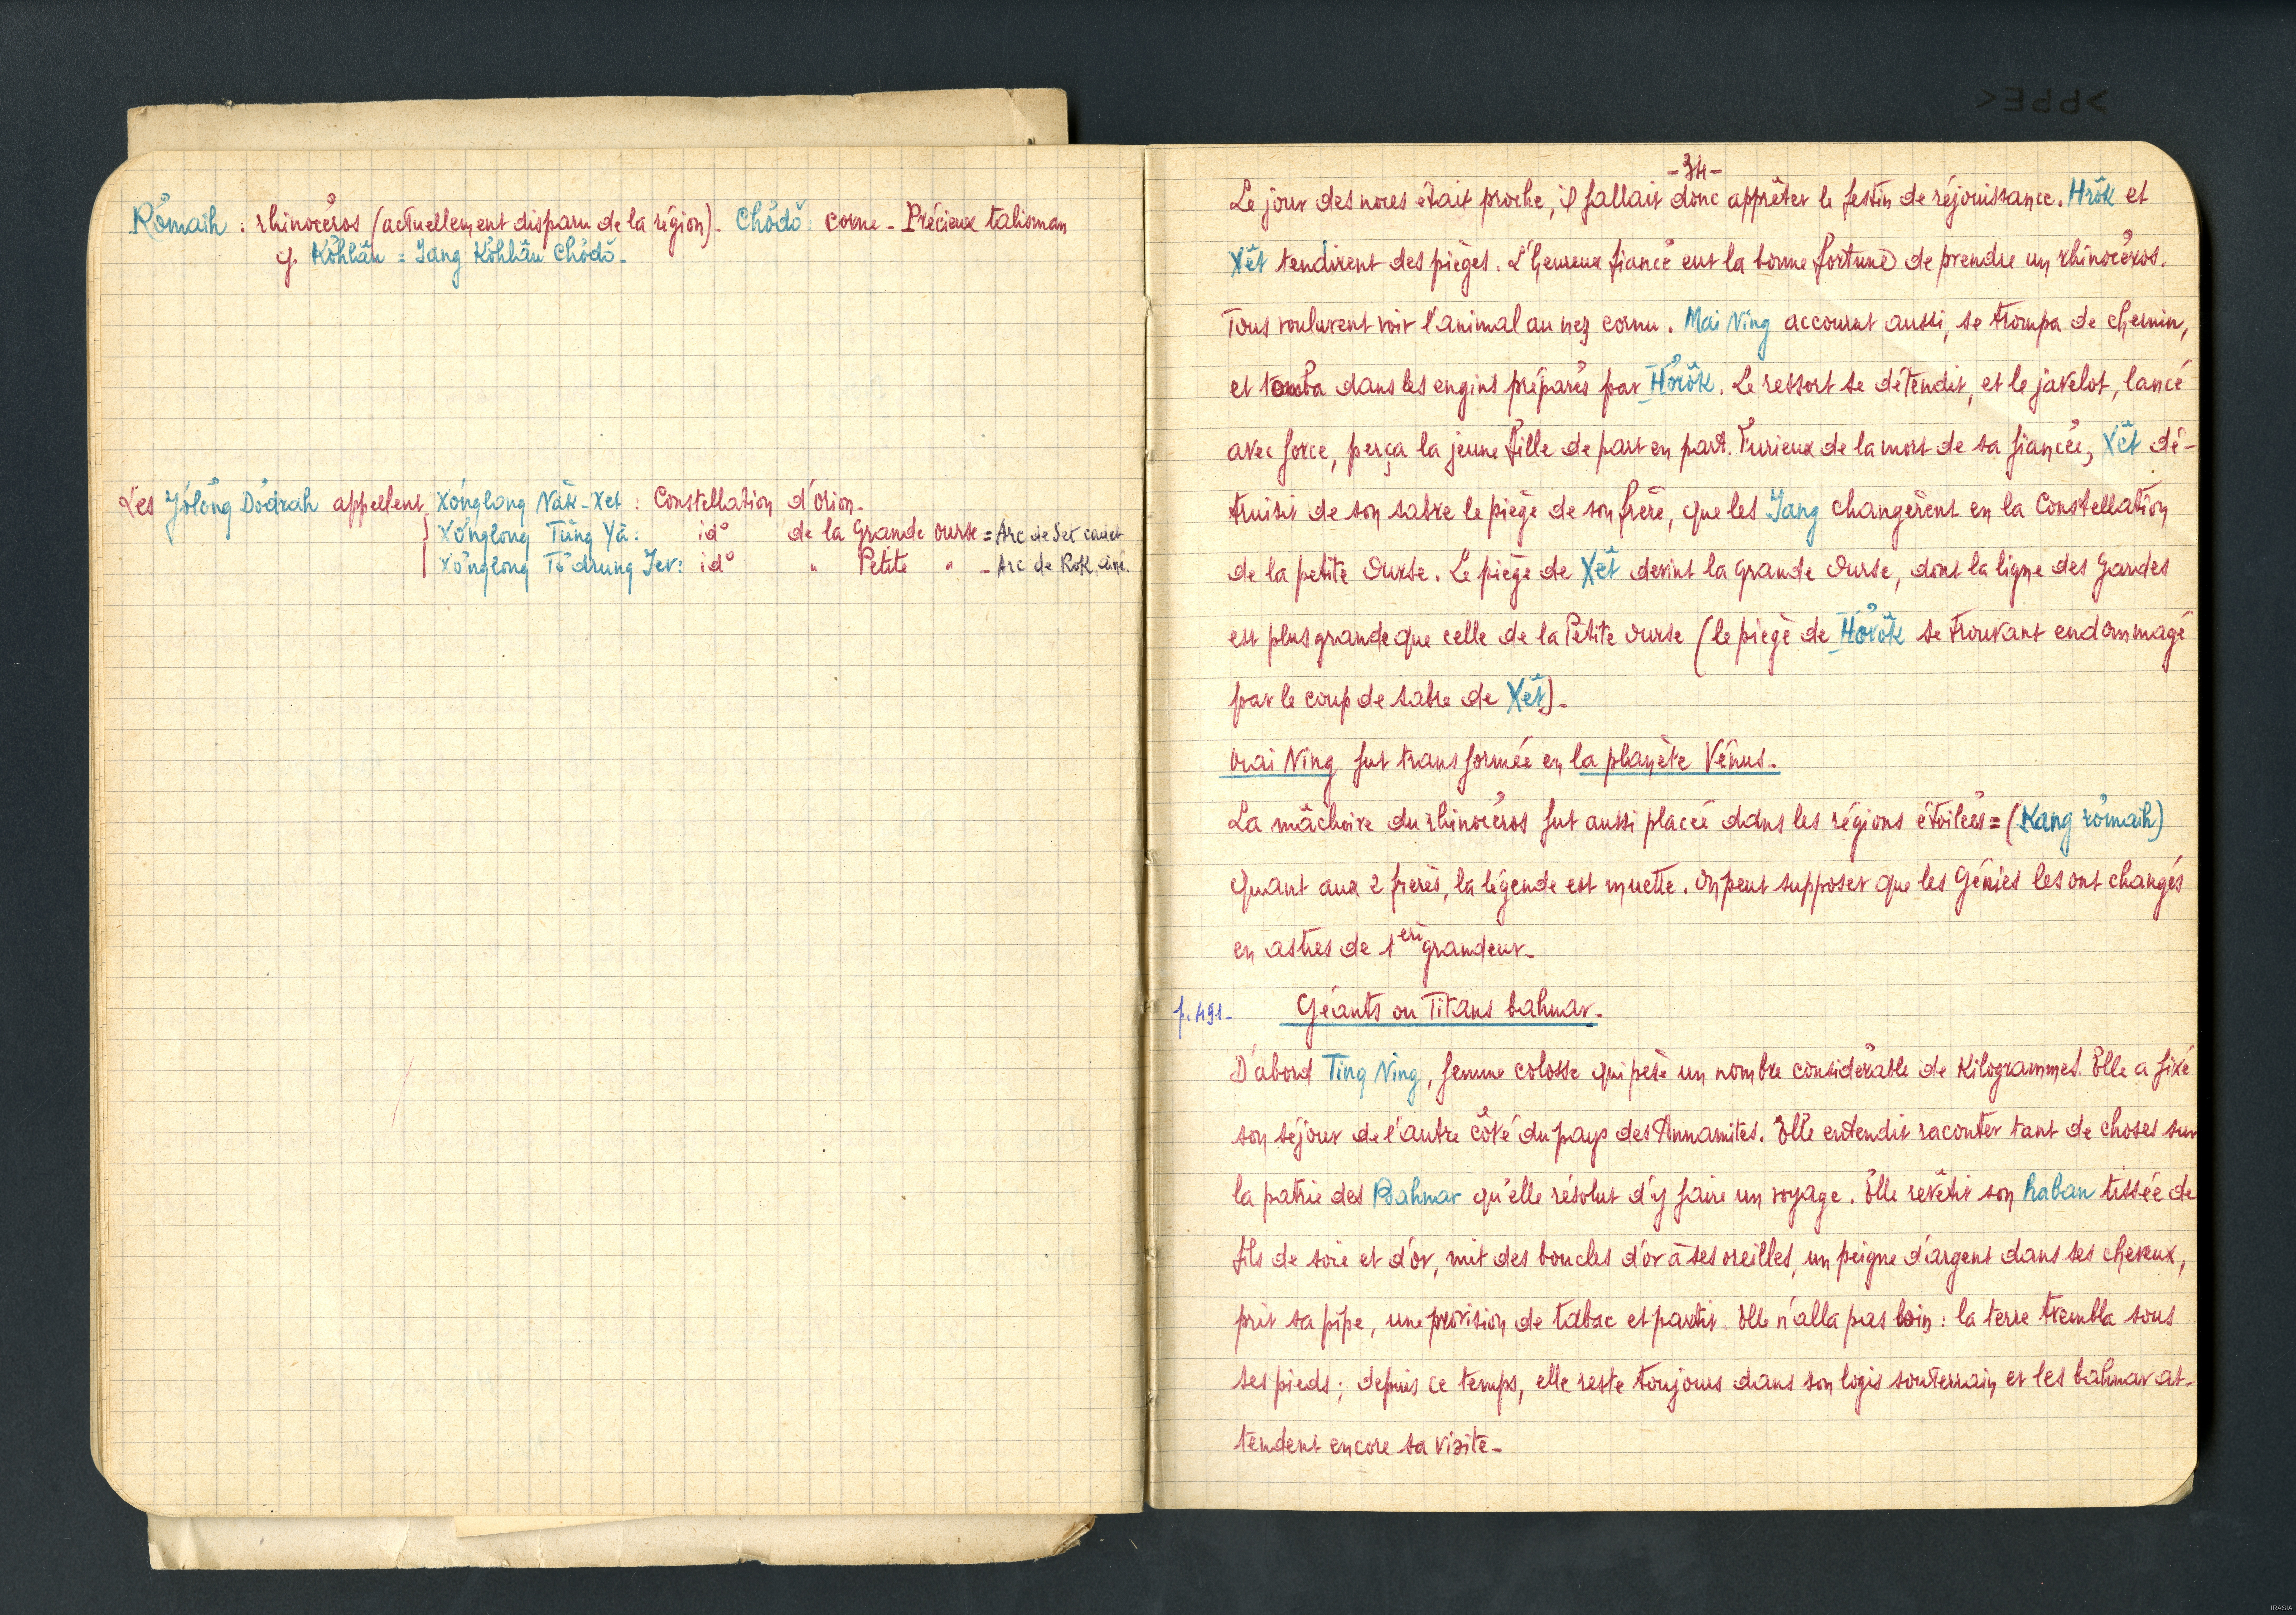 Rơmaih : rhinocéros (actuellement disparu de la région). Chŏdŏ : corne - Précieux talisman
cf. Kơhlâu = Iang Kơhlâu Chŏdŏ -
Les Jơlơng Dơdrah appellent Xơnglong Năk-Xet : Constellation d'Orion -
Xơnglong Tŭng Yă : idº de la Grande Ourse = Arc de Set cadet
Xơnglong Tơdrung Jer : idº " Petite " - Arc de Rok, ainé.
- 34 -
Le jour des noces était proche, il fallait donc apprêter le festin de réjouissance. Hrŏk et
Xĕt tendirent des pièges. L'heureux fiancé eut la bonne fortune de prendre un rhinocéros.
Tous voulurent voir l'animal au nez cornu. Mai Ning accourut aussi, se trompa de chemin,
et tomba dans les engins préparés par Hơrŏk. Le ressort se détendit, et le javelot, lancé
avec force, perça la jeune fille de part en part. Furieux de la mort de sa fiancée, Xĕt dé-
truisit de son sabre le piège de son frère, que les Iang changèrent en la Constellation
de la petite Ourse. Le piège de Xĕt devint la grande Ourse, dont la ligne des Gardes
est plus grande que celle de la Petite Ourse (le piège de Hơrŏk se trouvant endommagé
par le coup de sabre de Xĕt) -
Mai Ning fut transformée en la planète Vénus -
La mâchoire du rhinocéros fut aussi placée dans les régions étoilées = (Kang rơmaih)
Quant aux 2 frères, la légende est muette. On peut supposer que les Génies les ont changés
en astres de 1ère grandeur -
p. 491 -
Géants ou Titans bahnar -
D'abord Ting Ning, femme colosse qui pèse un nombre considérable de Kilogrammes. Elle a fixé
son séjour de l'autre côté du pays des Annamites. Elle entendit raconter tant de choses sur
la patrie des Bahnar qu'elle résolut d'y faire un voyage. Elle revêtit son haban tissée de
fils de soie et d'or, mit des boucles d'or à ses oreilles, un peigne d'argent dans ses cheveux,
prit sa pipe, une provision de tabac et partit. Elle n'alla pas loin : la terre trembla sous
ses pieds ; depuis ce temps, elle reste toujours dans son logis souterrain et les bahnar at-
tendent encore sa visite -
IRASIA